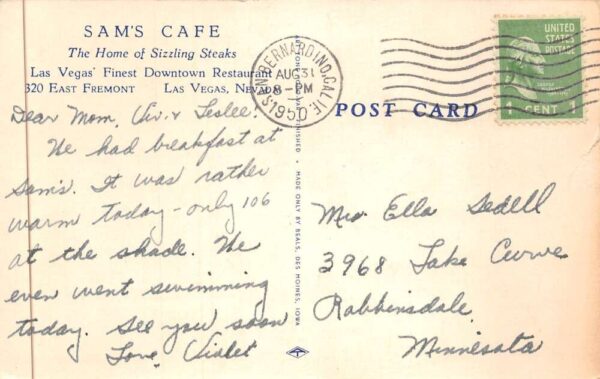 SAM'S CAFE
The Home of Sizzling Steaks
Las Vegas' Finest Downtown Restaurant
320 EAST FREMONT LAS VEGAS, NEVADA
Dear Mom, Viv. & Leslee:
We had breakfast at
Sam's. It was rather
warm today - only 106
at the shade. We
even went swimming
today. See you soon
Love Violet
SAN BERNARDINO, CALIF.
AUG 31
8 - PM
1950
POST CARD
UNITED
STATES
POSTAGE
1 CENT 1
MADE ONLY BY BEALS, DES MOINES, IOWA
Mrs Ella Sedell
3968 Lake Curve
Robbinsdale
Minnesota